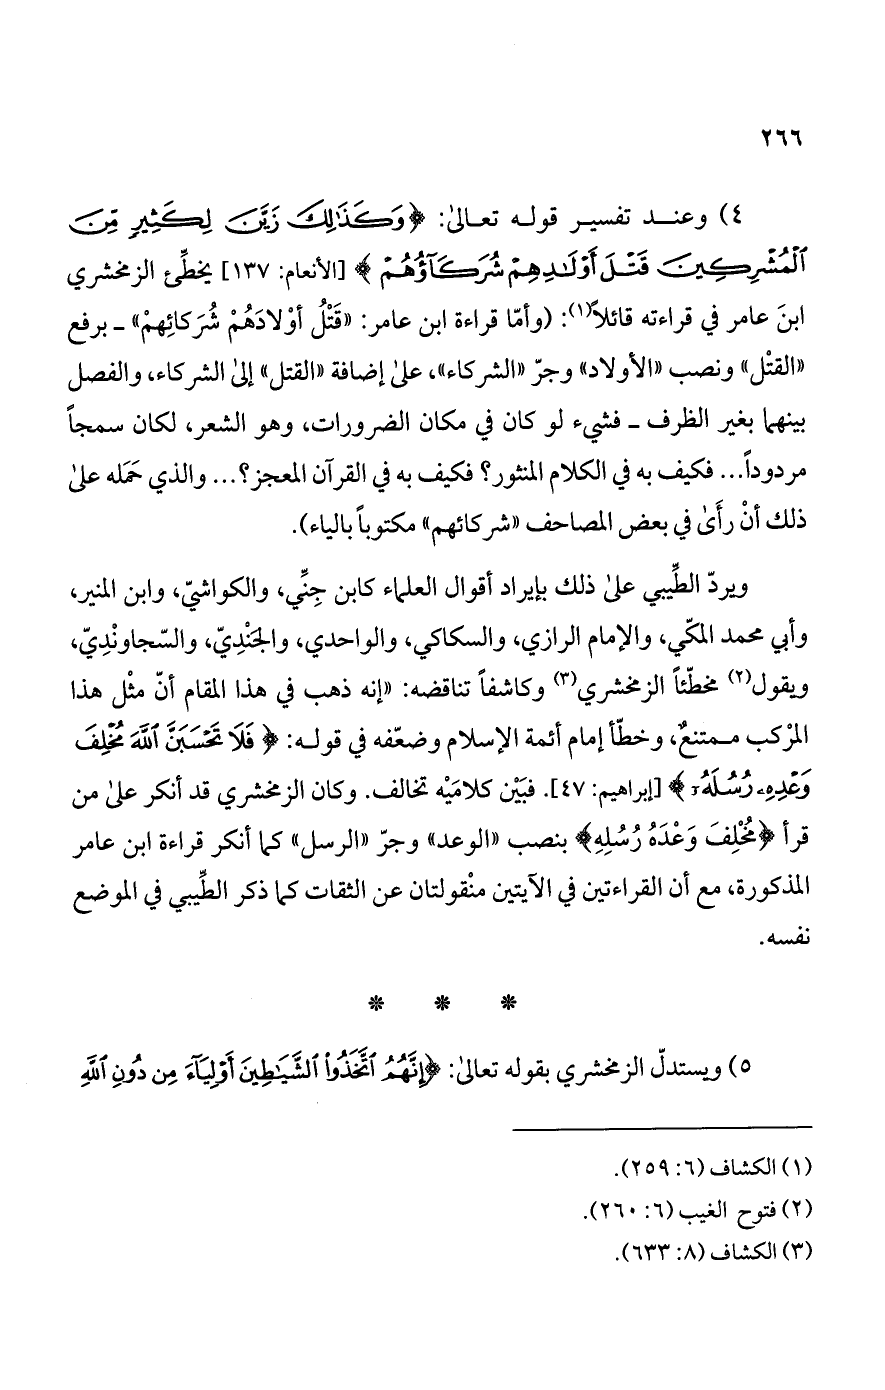 ٢٦٦
٤) وعند تفسير قوله تعالىٰ: ﴿وَكَذَٰلِكَ زَيَّنَ لِكَثِيرٍ مِّنَ
ٱلْمُشْرِكِينَ قَتْلَ أَوْلَٰدِهِمْ شُرَكَآؤُهُمْ﴾ [الأنعام: ١٣٧] يخطِّئ الزمخشري
ابنَ عامر في قراءته قائلاً(١): (وأمّا قراءة ابن عامر: «قَتْلُ أوْلادَهُمْ شُرَكائِهِمْ» ـ برفع
«القتْل» ونصب «الأولاد» وجرّ «الشركاء»، علىٰ إضافة «القتل» إلىٰ الشركاء، والفصل
بينهما بغير الظرف ـ فشيء لو كان في مكان الضرورات، وهو الشعر، لكان سمجاً
مردوداً... فكيف به في الكلام المنثور؟ فكيف به في القرآن المعجز؟... والذي حَمَله علىٰ
ذلك أنْ رأىٰ في بعض المصاحف «شركائهم» مكتوباً بالياء).
ويردّ الطِّيبي علىٰ ذلك بإيراد أقوال العلماء كابن جِنِّي، والكواشيّ، وابن المنير،
وأبي محمد المكّي، والإمام الرازي، والسكاكي، والواحدي، والجَنْدِيّ، والسّجاونْدِيّ،
ويقول(٢) مخطّئاً الزمخشري(٣) وكاشفاً تناقضه: «إنه ذهب في هذا المقام أنّ مثْل هذا
المرْكب ممتنعٌ، وخطّأ إمام أئمة الإسلام وضعّفه في قوله: ﴿فَلَا تَحْسَبَنَّ ٱللَّهَ مُخْلِفَ
وَعْدِهِۦ رُسُلَهُۥٓ﴾ [إبراهيم: ٤٧]. فبَيْن كلامَيْه تخالف. وكان الزمخشري قد أنكر علىٰ من
قرأ ﴿مُخْلِفَ وَعْدَهُ رُسُلِهِ﴾ بنصب «الوعد» وجرّ «الرسل» كما أنكر قراءة ابن عامر
المذكورة، مع أن القراءتين في الآيتين منْقولتان عن الثقات كما ذكر الطِّيبي في الموضع
نفسه.
* * *
٥) ويستدلّ الزمخشري بقوله تعالىٰ: ﴿إِنَّهُمُ ٱتَّخَذُوا۟ ٱلشَّيَٰطِينَ أَوْلِيَآءَ مِن دُونِ ٱللَّهِ
(١) الكشاف (٦: ٢٥٩).
(٢) فتوح الغيب (٦: ٢٦٠).
(٣) الكشاف (٨: ٦٣٣).